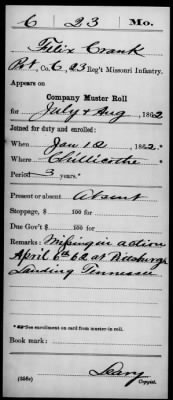 C 23 Mo.
Felix Crank
Pvt, Co. C, 23 Reg't Missouri Infantry.
Appears on
Company Muster Roll
for July & Aug, 1862
Joined for duty and enrolled:
When Jan 12, 1862.*
Where Chillicothe
Period 3 years.*
Present or absent Absent
Stoppage, $ 100 for
Due Gov't $ 100 for
Remarks: Missing in action
April 6th 62 at Pittsburg
Landing Tennessee
* See enrollment on card from muster-in roll.
Book mark:
(358c) Copyist.